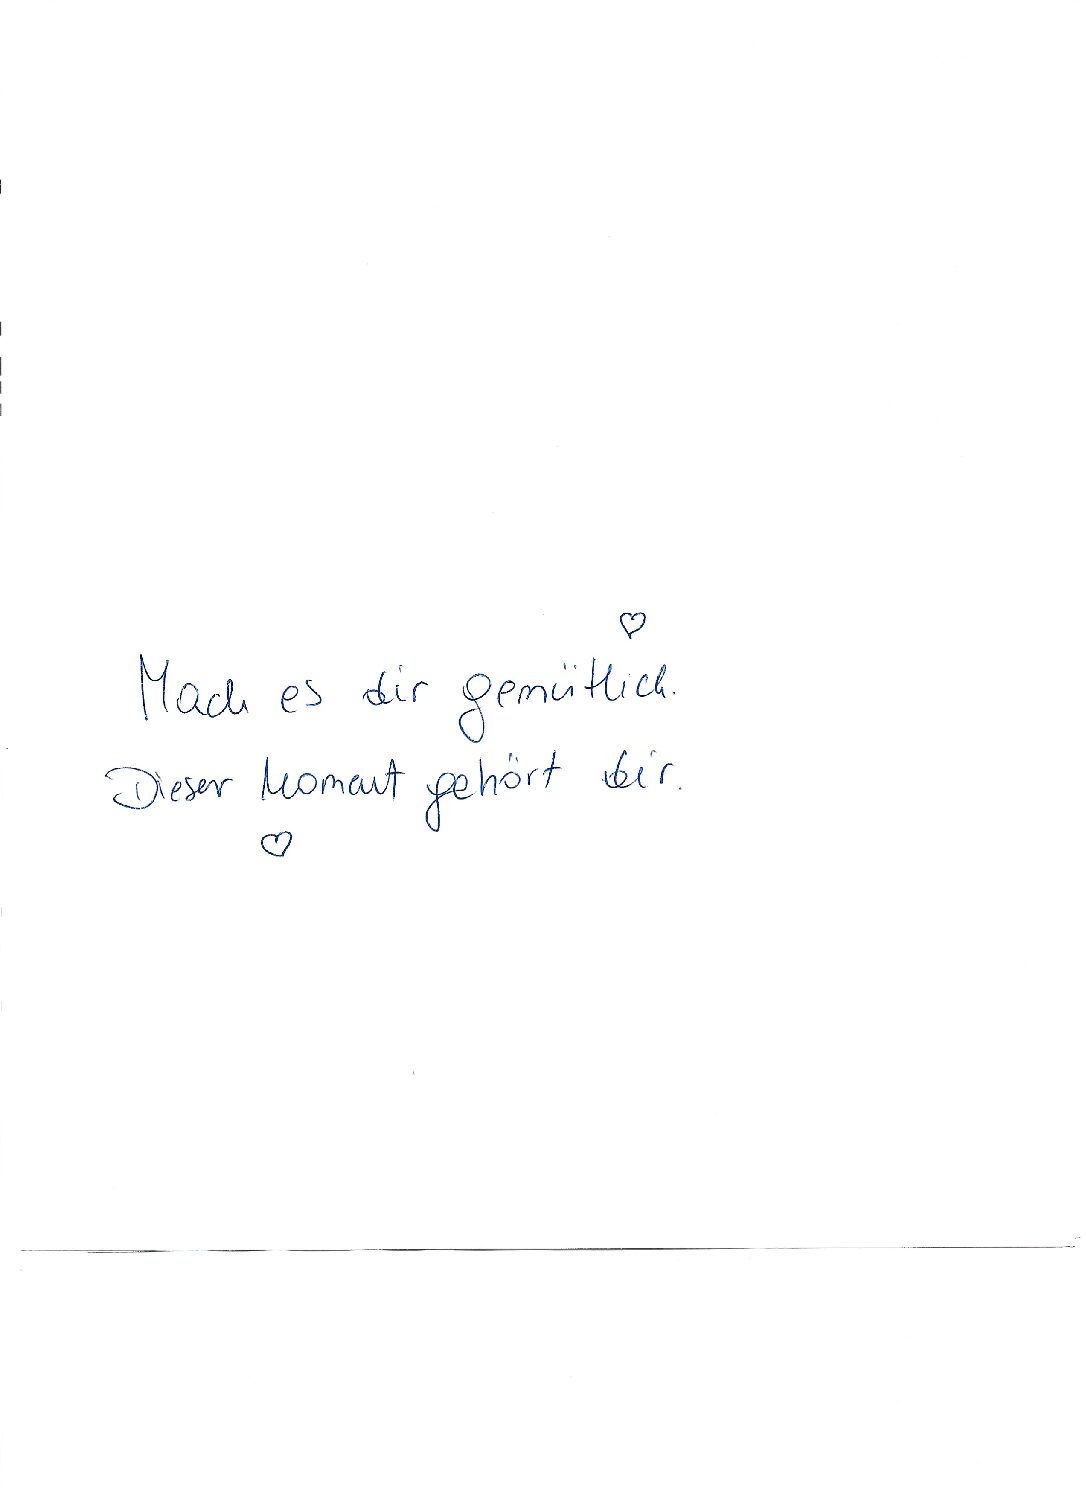 Mach es dir gemütlich.
Dieser Moment gehört dir.